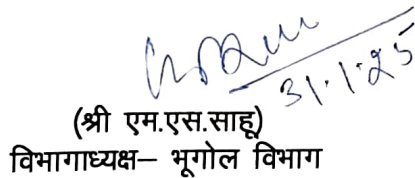 31.1.25
(श्री एम.एस.साहू)
विभागाध्यक्ष– भूगोल विभाग